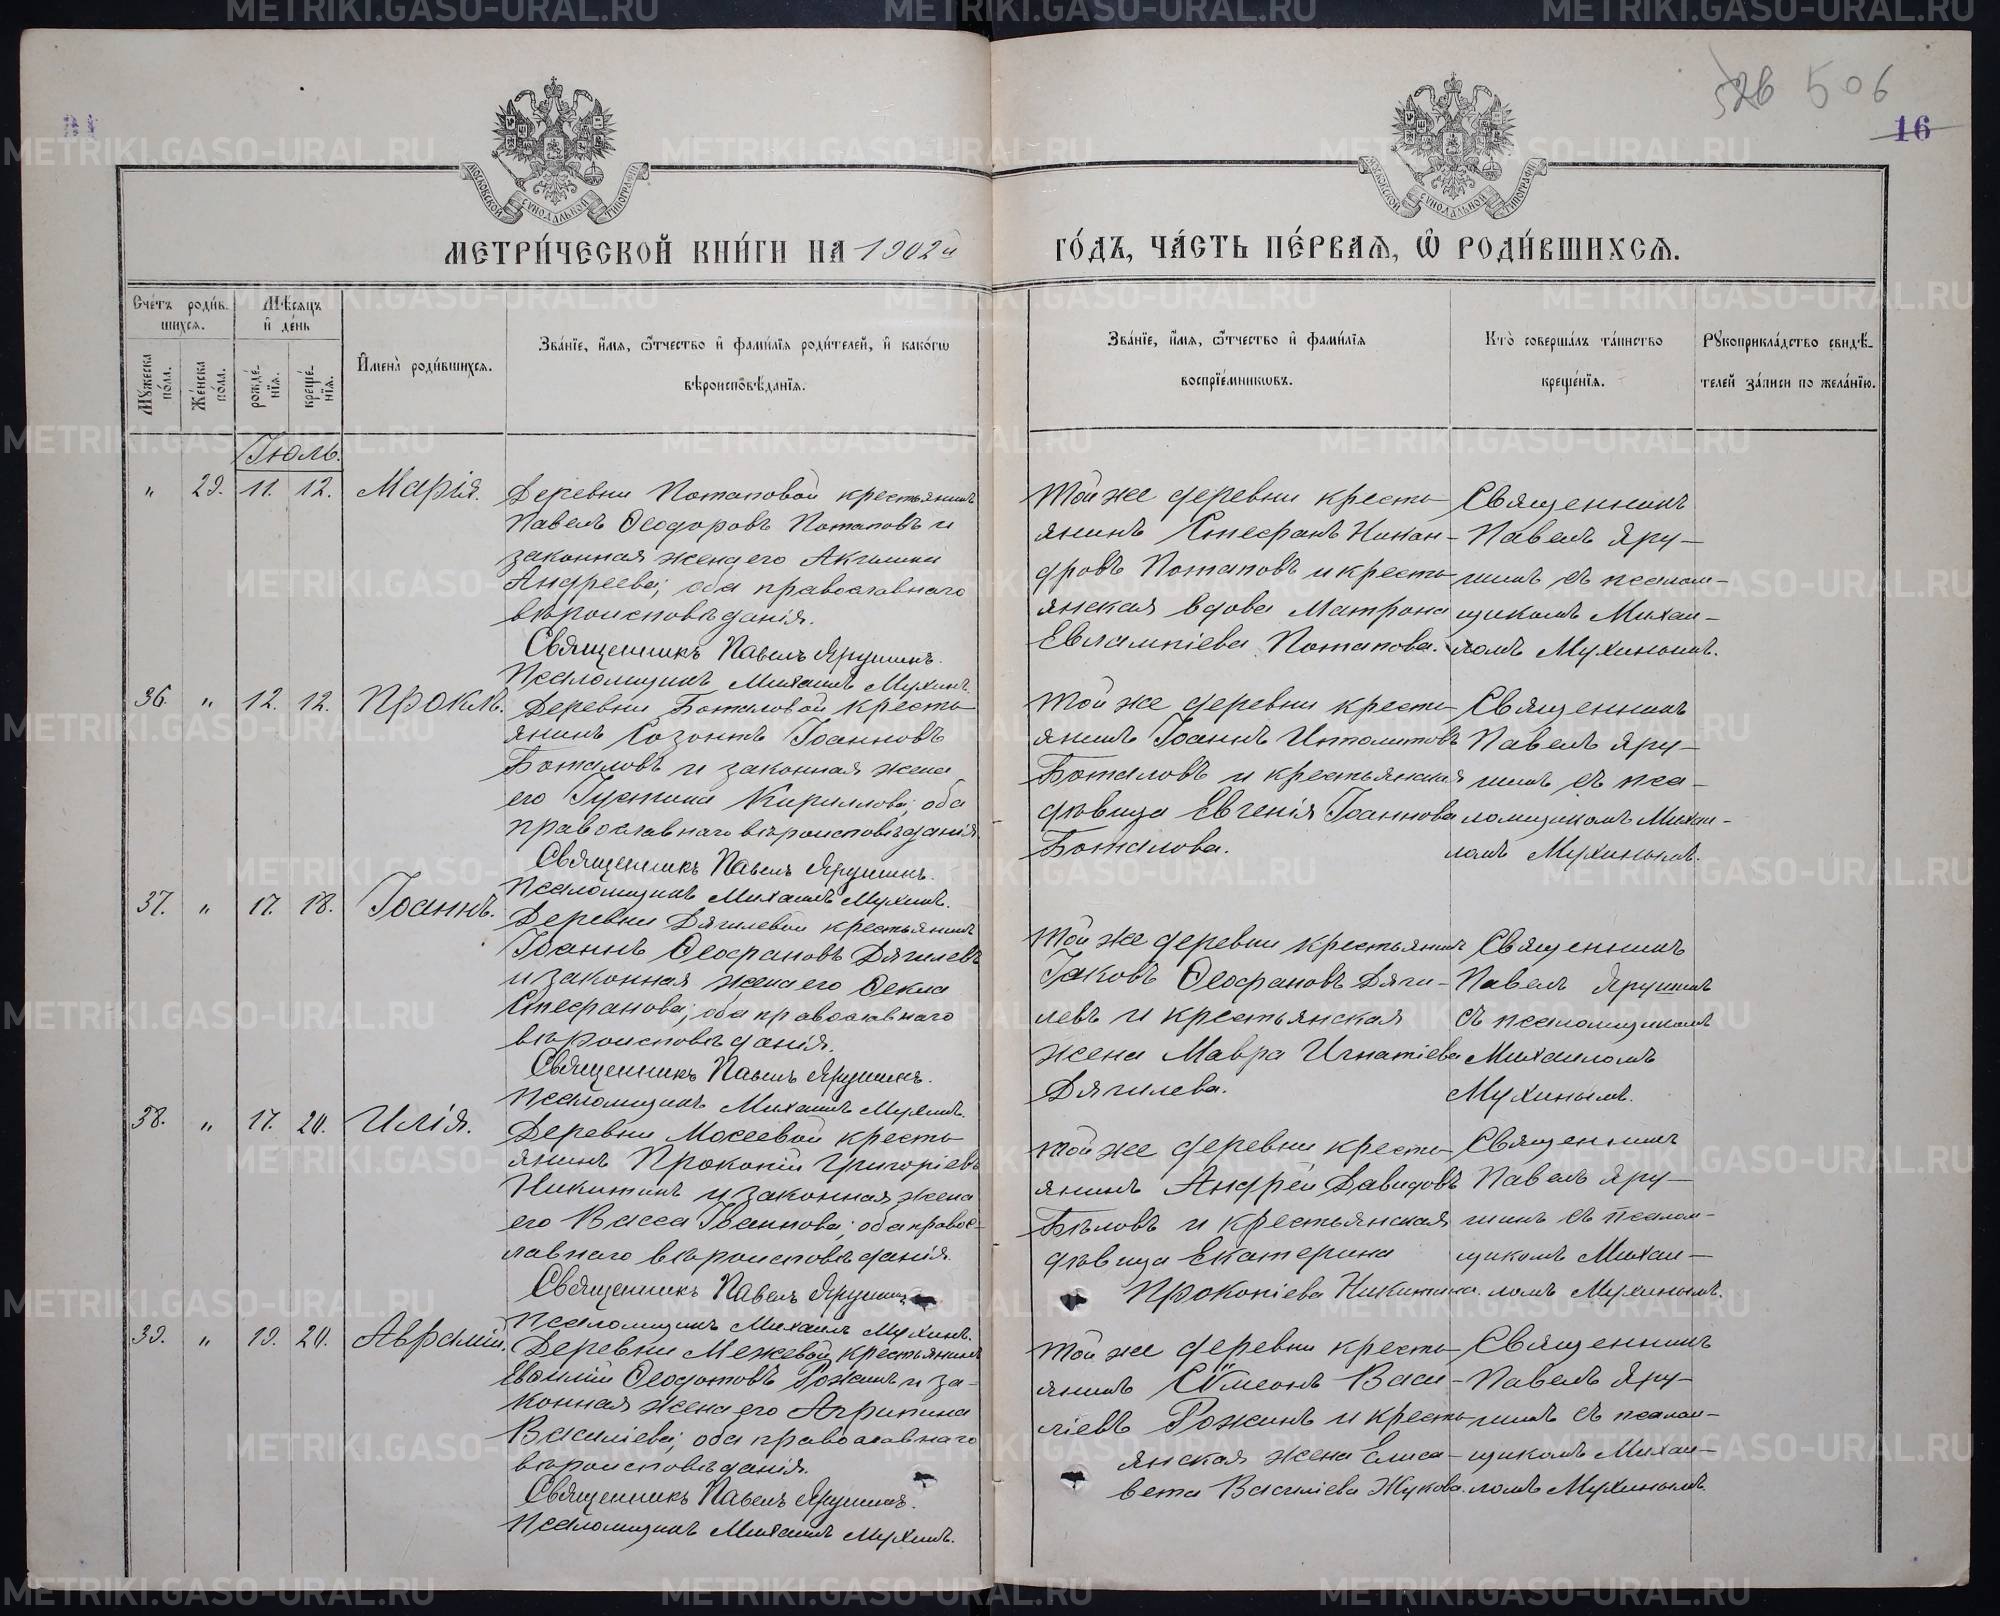 526 506
16
МОСКОВСКОЙ СѴНОДАЛЬНОЙ ТИПОГРАФІИ
МОСКОВСКОЙ СѴНОДАЛЬНОЙ ТИПОГРАФІИ
МЕТРИ́ЧЕСКОЙ КНИ́ГИ НА 1902й
ГО́ДЪ, ЧА́СТЬ ПЕ́РВАЯ, Ѡ҆ РОДИ́ВШИХСЯ.
Сче́тъ роди́в-
шихся.
Мѣ́сяцъ
и҆ де́нь
Мꙋ́жеска
по́ла.
Же́нска
по́ла.
рожде́-
нїя.
креще́-
нїя.
И҆мена̀ роди́вшихся.
Зва́нїе, и҆́мя, ѻ҆́тчество и҆ фами́лїя роди́телей, и҆ како́гѡ
вѣроисповѣ́данїя.
Зва́нїе, и҆́мя, ѻ҆́тчество и҆ фами́лїя
воспрїе́мникѡвъ.
Кто̀ соверша́лъ та́инство
креще́нїя.
Рꙋкоприкла́дство свидѣ́-
телей за́писи по жела́нїю.
Іюль.
" 29. 11. 12. Марія.
Деревни Потаповой крестьянинъ
Павелъ Ѳеодоровъ Потаповъ и
законная жена его Акилина
Андреева; оба православнаго
вѣроисповѣданія.
Священникъ Павелъ Ярушинъ.
Псаломщикъ Михаилъ Мухинъ.
Той же деревни кресть-
янинъ Стефанъ Никан-
дровъ Потаповъ и кресть-
янская вдова Матрона
Евлампіева Потапова.
Священникъ
Павелъ Яру-
шинъ съ псалом-
щикомъ Михаи-
ломъ Мухинымъ.
36. " 12. 12. Проклъ.
Деревни Боталовой кресть-
янинъ Созонтъ Іоанновъ
Боталовъ и законная жена
его Іустина Кириллова; оба
православнаго вѣроисповѣданія.
Священникъ Павелъ Ярушинъ.
Псаломщикъ Михаилъ Мухинъ.
Той же деревни кресть-
янинъ Іоаннъ Иполитовъ
Боталовъ и крестьянская
дѣвица Евгенія Іоаннова
Боталова.
Священникъ
Павелъ Яру-
шинъ съ пса-
ломщикомъ Михаи-
ломъ Мухинымъ.
37. " 17. 18. Іоаннъ.
Деревни Дягилевой крестьянинъ
Іоаннъ Ѳеофановъ Дягилевъ
и законная жена его Ѳекла
Стефанова; оба православнаго
вѣроисповѣданія.
Священникъ Павелъ Ярушинъ.
Псаломщикъ Михаилъ Мухинъ.
Той же деревни крестьянинъ
Іаковъ Ѳеофановъ Дяги-
левъ и крестьянская
жена Мавра Игнатіева
Дягилева.
Священникъ
Павелъ Ярушинъ
съ псаломщикомъ
Михаиломъ
Мухинымъ.
38. " 17. 20. Илія.
Деревни Мосеевой кресть-
янинъ Прокопій Григоріевъ
Никитинъ и законная жена
его Васса Іоаннова; оба правос-
лавнаго вѣроисповѣданія.
Священникъ Павелъ Ярушинъ
Псаломщикъ Михаилъ Мухинъ.
Той же деревни кресть-
янинъ Андрей Давидовъ
Бѣловъ и крестьянская
дѣвица Екатерина
Прокопіева Никитина.
Священникъ
Павелъ Яру-
шинъ съ псалом-
щикомъ Михаи-
ломъ Мухинымъ.
39. " 19. 20. Аврамій.
Деревни Межевой крестьянинъ
Евфимій Ѳеодотовъ Рожинъ и за-
конная жена его Агрипина
Василіева; оба православнаго
вѣроисповѣданія.
Священникъ Павелъ Ярушинъ.
Псаломщикъ Михаилъ Мухинъ.
Той же деревни кресть-
янинъ Сѷмеонъ Васи-
ліевъ Рожинъ и кресть-
янская жена Елиса-
вета Василіева Жукова.
Священникъ
Павелъ Яру-
шинъ съ псалом-
щикомъ Михаи-
ломъ Мухинымъ.
METRIKI.GASO-URAL.RU